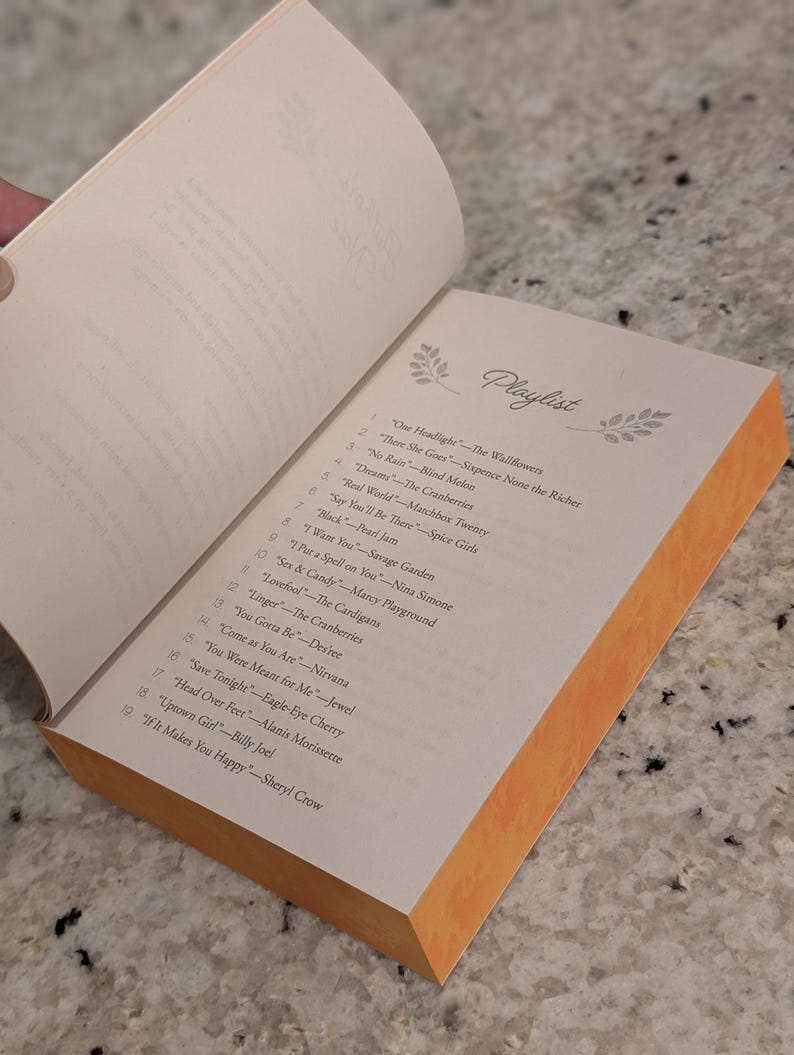 Playlist
1. "One Headlight"—The Wallflowers
2. "There She Goes"—Sixpence None the Richer
3. "No Rain"—Blind Melon
4. "Dreams"—The Cranberries
5. "Real World"—Matchbox Twenty
6. "Say You'll Be There"—Spice Girls
7. "Black"—Pearl Jam
8. "I Want You"—Savage Garden
9. "I Put a Spell on You"—Nina Simone
10. "Sex & Candy"—Marcy Playground
11. "Lovefool"—The Cardigans
12. "Linger"—The Cranberries
13. "You Gotta Be"—Des'ree
14. "Come as You Are"—Nirvana
15. "You Were Meant for Me"—Jewel
16. "Save Tonight"—Eagle-Eye Cherry
17. "Head Over Feet"—Alanis Morissette
18. "Uptown Girl"—Billy Joel
19. "If It Makes You Happy"—Sheryl Crow